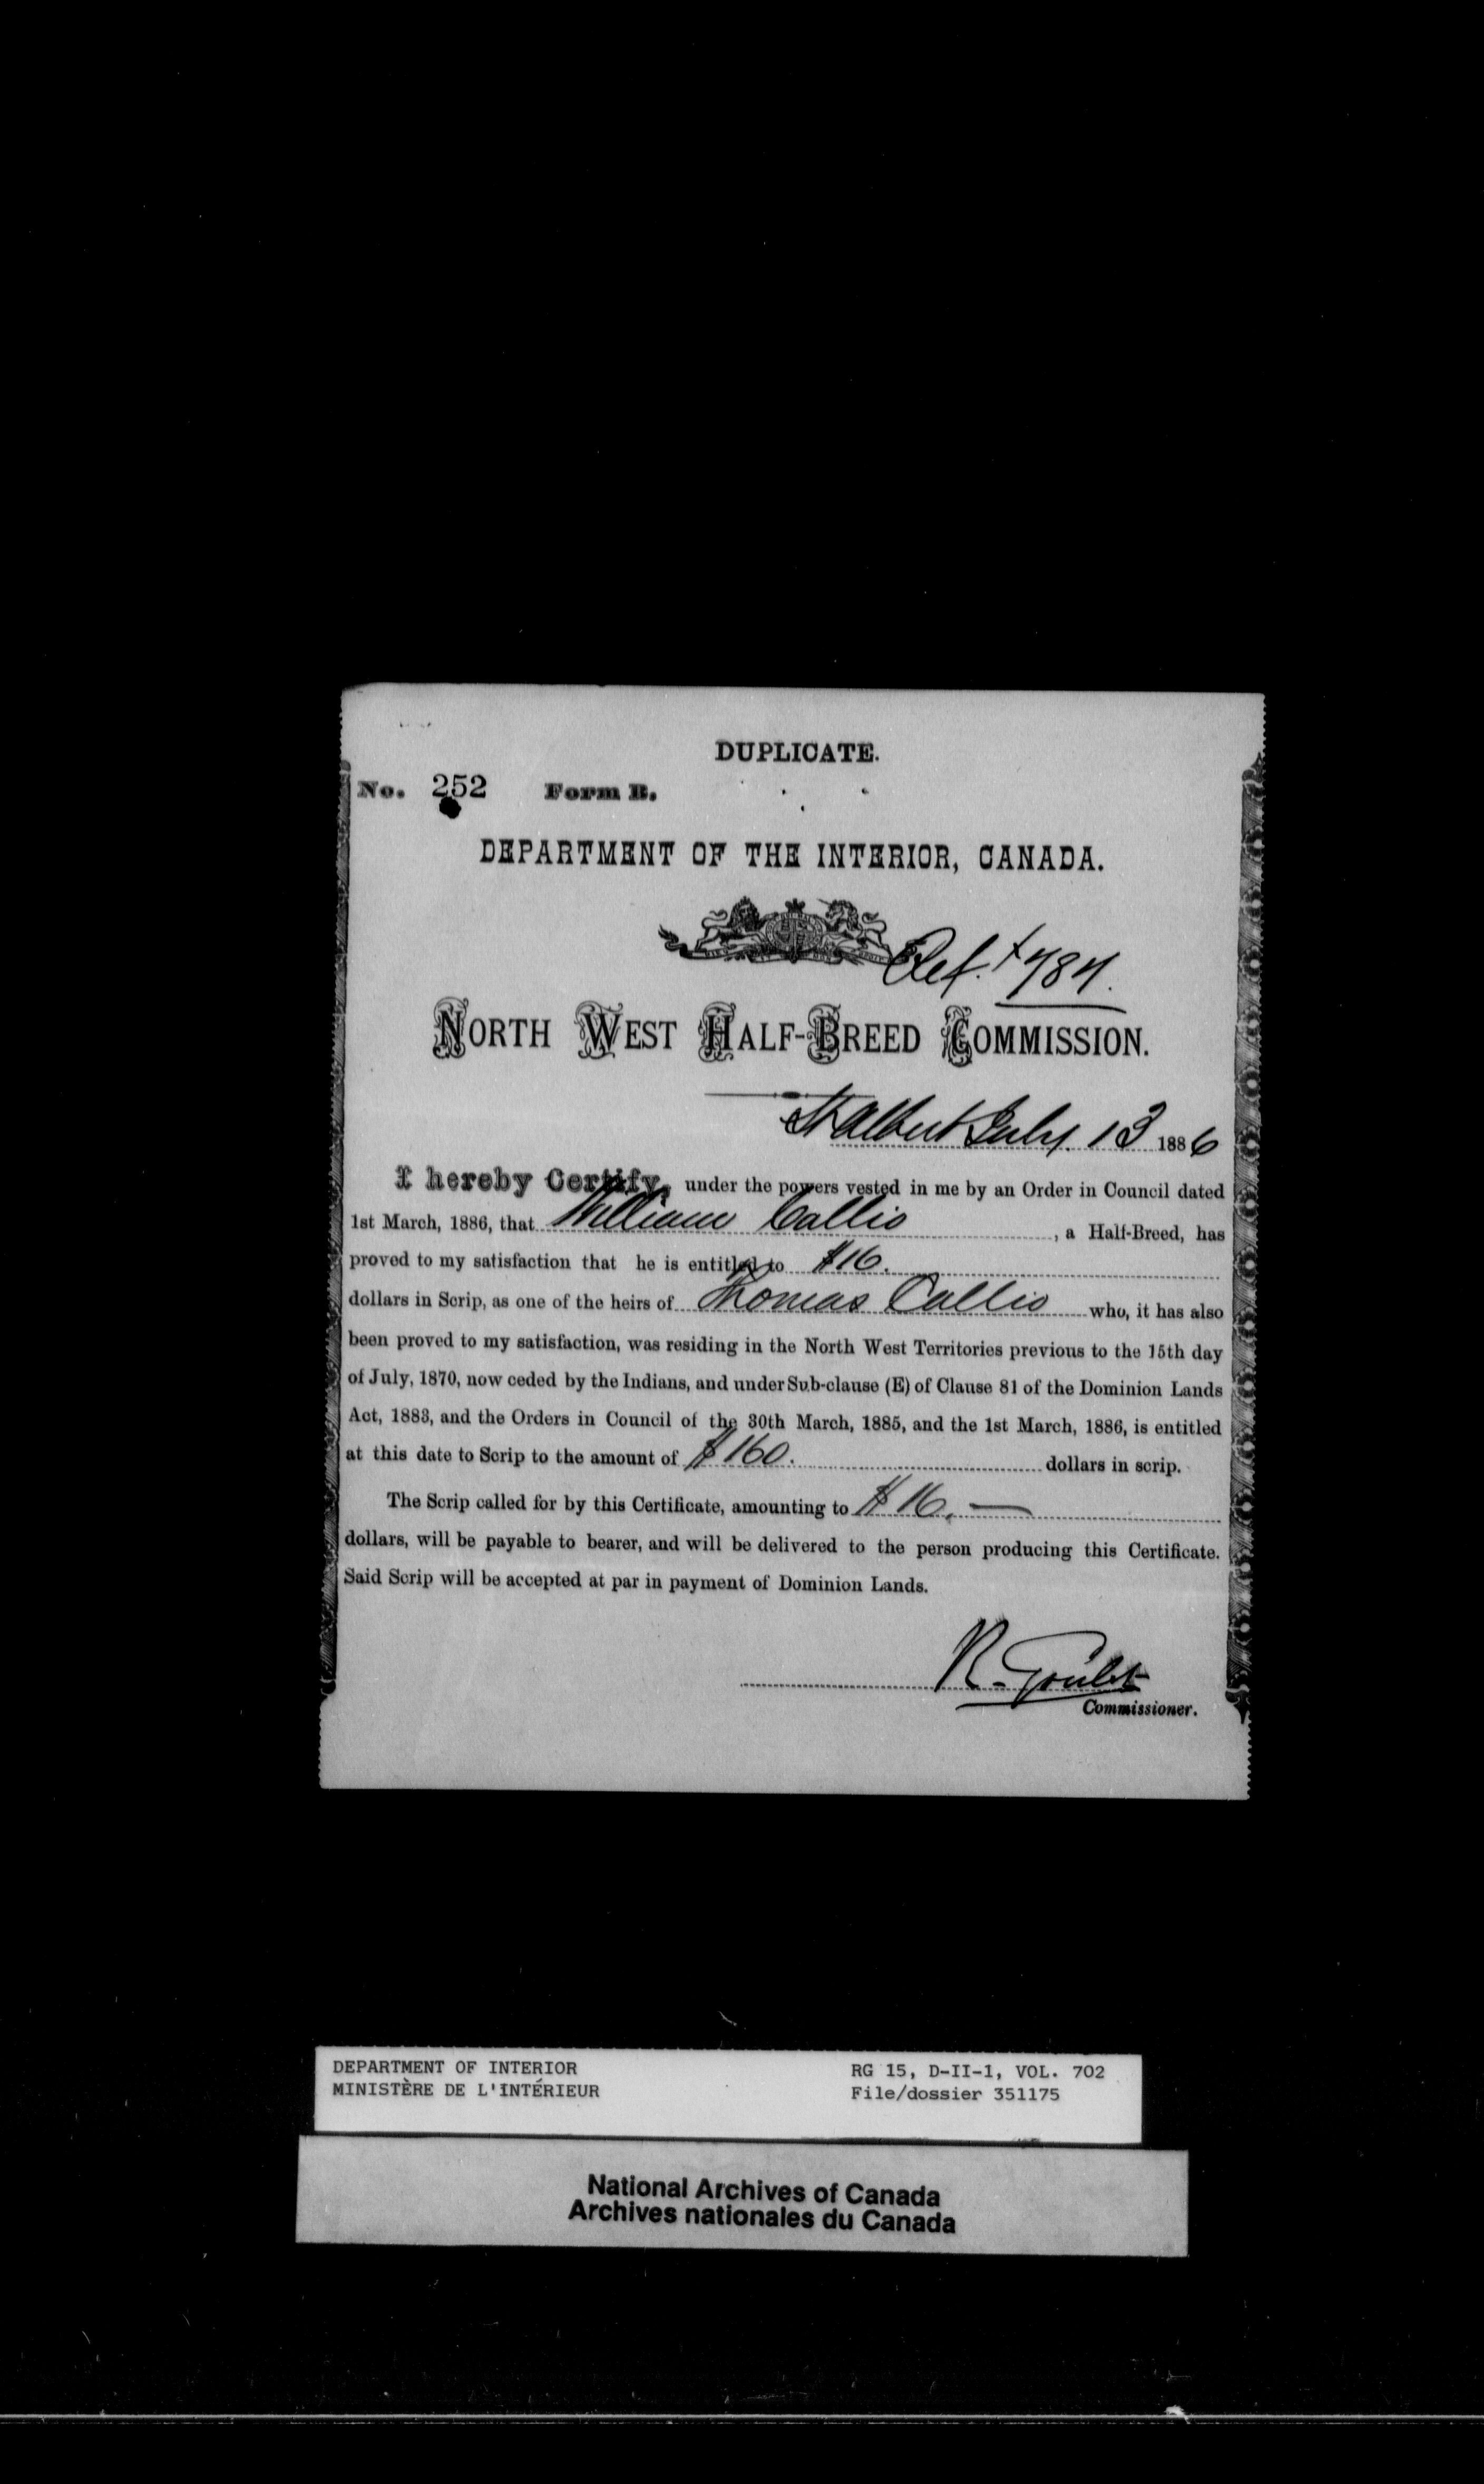 DUPLICATE.
No. 252 Form B.
DEPARTMENT OF THE INTERIOR, CANADA.
NORTH WEST HALF-BREED COMMISSION.
St Albert July. 13 1886
I hereby Certify, under the powers vested in me by an Order in Council dated
1st March, 1886, that William Callio, a Half-Breed, has
proved to my satisfaction that he is entitled to $16.
dollars in Scrip, as one of the heirs of Thomas Callio who, it has also
been proved to my satisfaction, was residing in the North West Territories previous to the 15th day
of July, 1870, now ceded by the Indians, and under Sub-clause (E) of Clause 81 of the Dominion Lands
Act, 1883, and the Orders in Council of the 30th March, 1885, and the 1st March, 1886, is entitled
at this date to Scrip to the amount of $160. dollars in scrip.
The Scrip called for by this Certificate, amounting to $16.—
dollars, will be payable to bearer, and will be delivered to the person producing this Certificate.
Said Scrip will be accepted at par in payment of Dominion Lands.
R. Goulet
Commissioner.
DEPARTMENT OF INTERIOR RG 15, D-II-1, VOL. 702
MINISTÈRE DE L'INTÉRIEUR File/dossier 351175
National Archives of Canada
Archives nationales du Canada